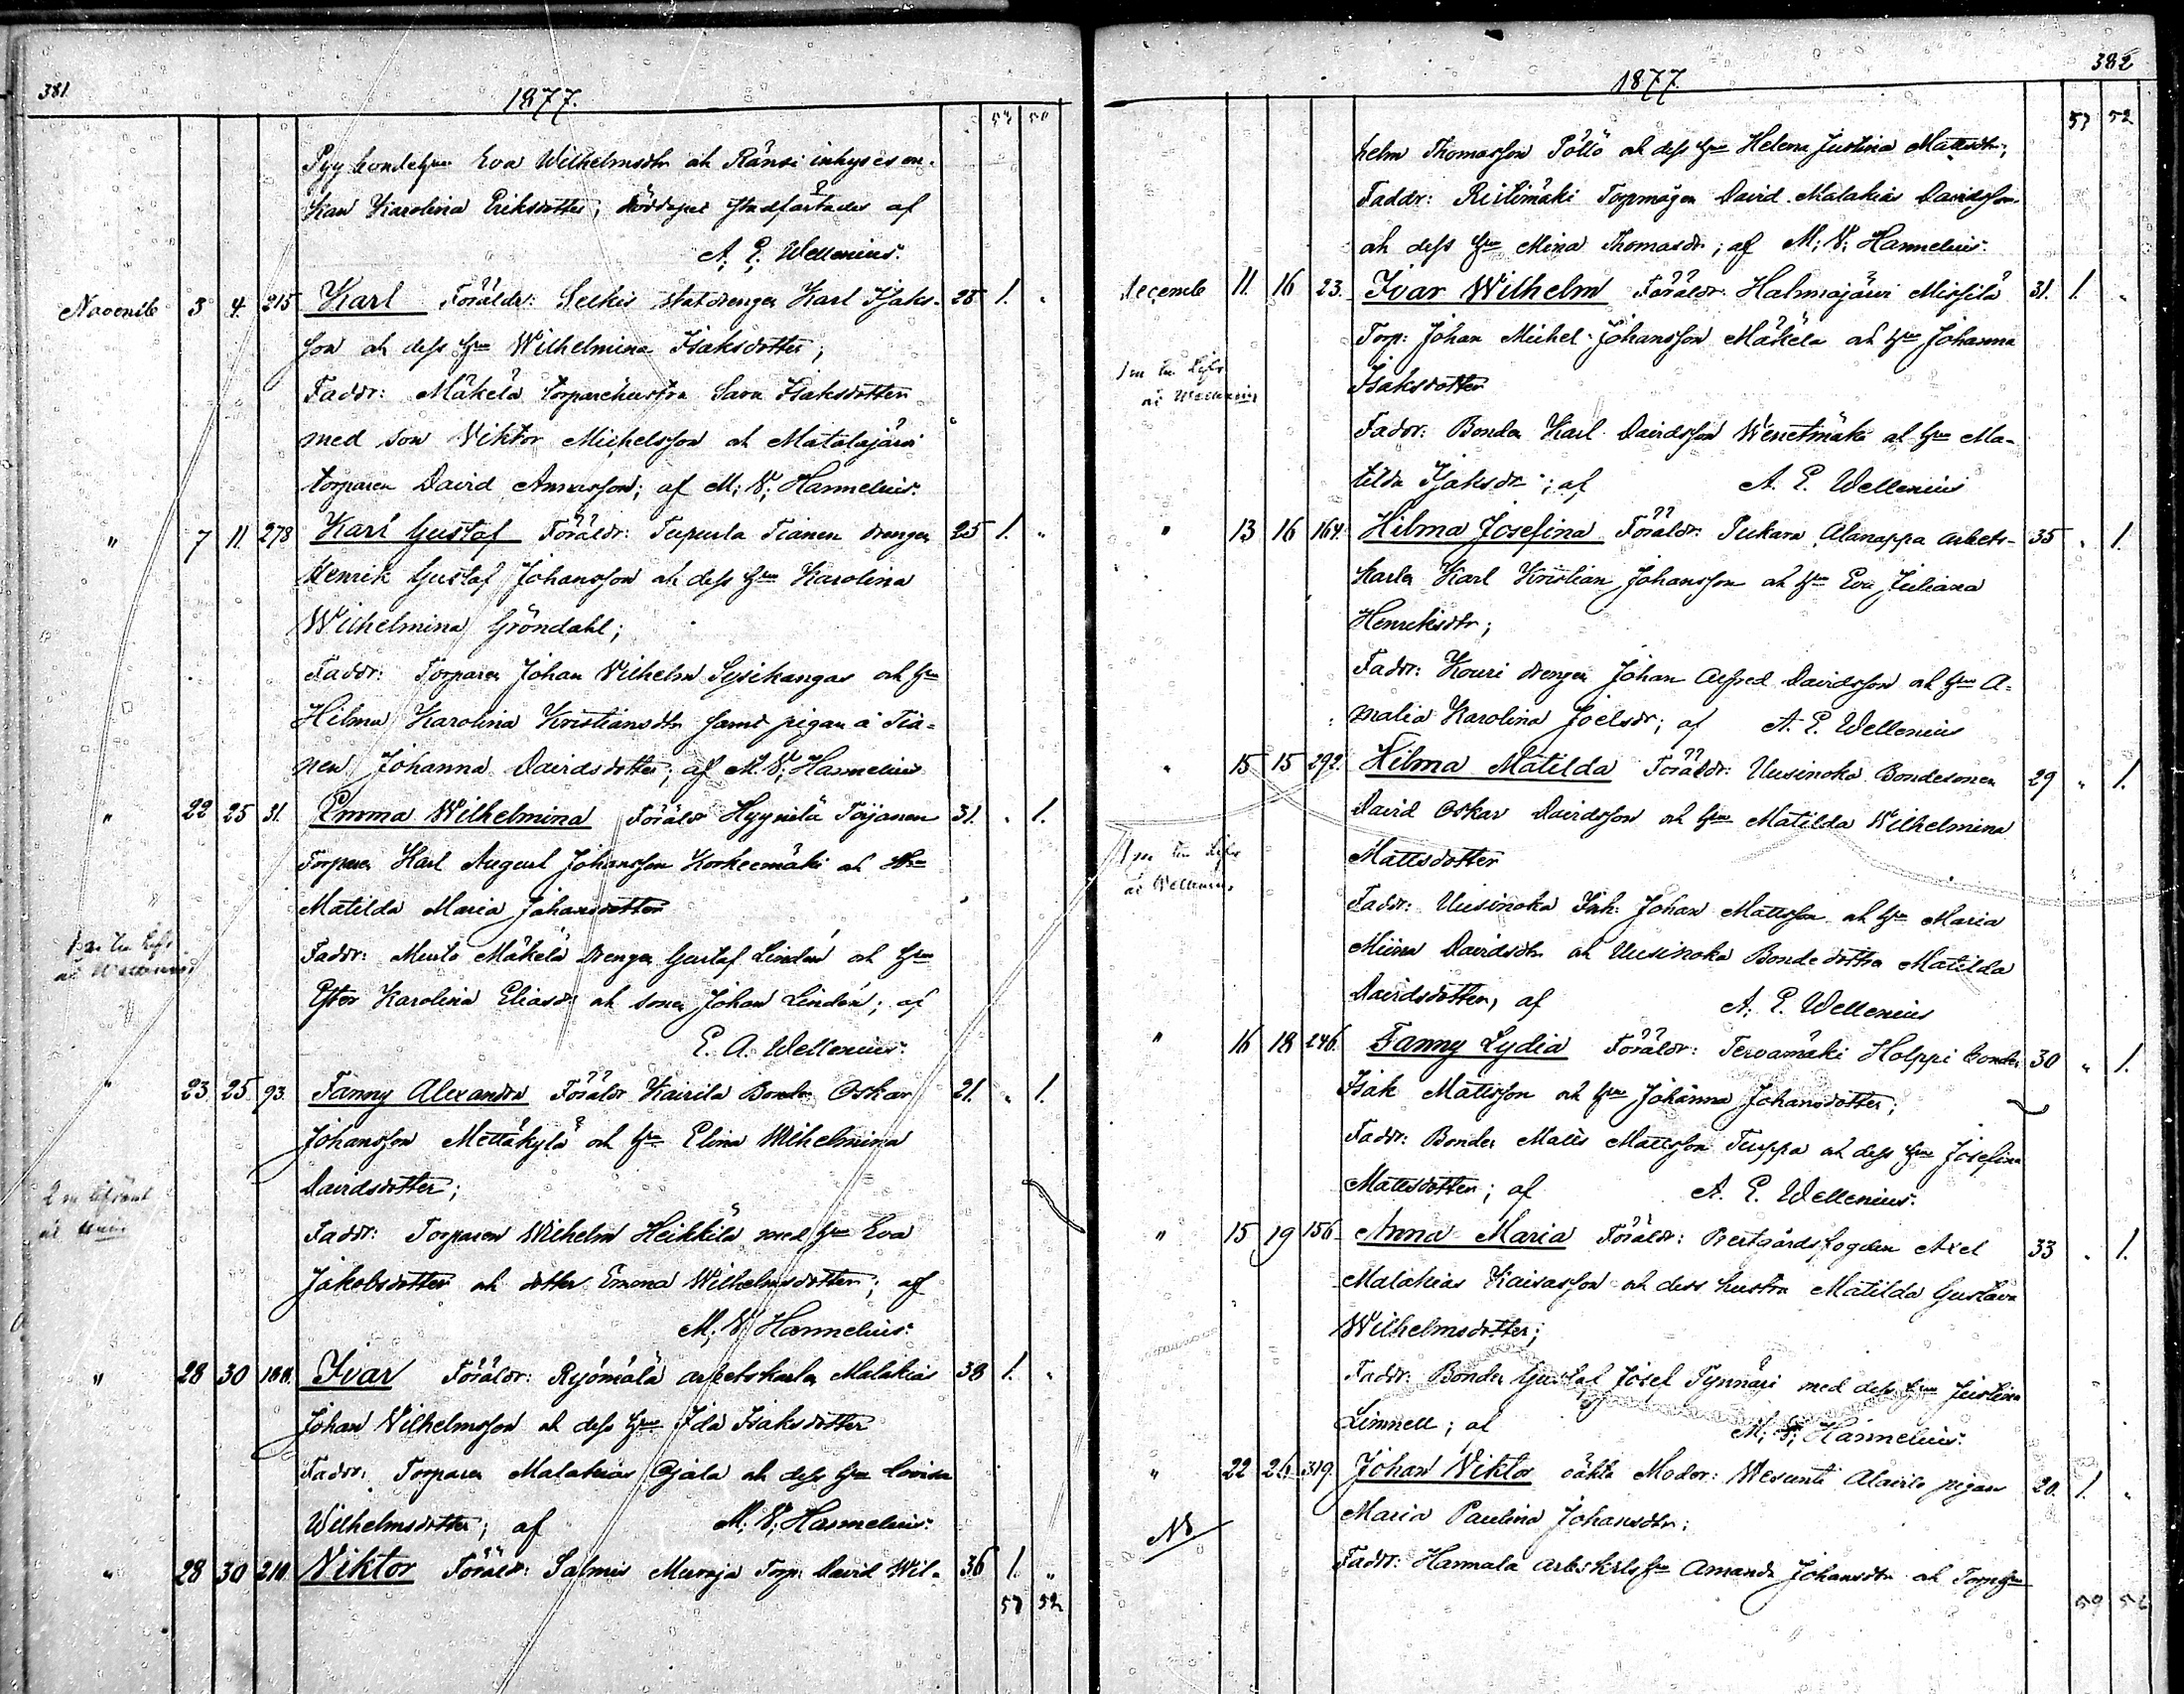 381.
1877.
53 50
Pyy bondehru Eva Wilhelmsdtr och Ränsi inhyses en-
kan Karolina Eriksdotter; nöddopet stadfästades af
A. E. Wellenius.
Novemb 3 4 215 Karl Föräldr: Selkis statdrengen Karl Isaks- 28 1. "
son och dess hru Wilhelmina Isaksdotter;
Faddr: Mäkelä torparehustru Sara Isaksdotter
med son Viktor Michelsson och Matalajärvi
torparen David Annasson; af M. V. Hannelius.
" 7 11 278 Karl Gustaf Föräldr: Tupurla Tianen drengen 25 1. "
Henrik Gustaf Johansson och dess hru Karolina
Wilhelmina Gröndahl;
Faddr: Torparen Johan Vilhelm Sysikangas och hru
Hilma Karolina Kristiansdtr samt pigan å Tia-
nen Johanna Davidsdotter; af M. V. Hannelius
" 22 25 31. Emma Wilhelmina Föräldr Hyynilä Törjänen 31. " 1.
Torparen Karl August Johansson Korkeemäki och Hru
Matilda Maria Johansdotter
Faddr: Musto Mäkelä Drengen Gustaf Lindén och hru
Ester Karolina Eliasdr och sonen Johan Lindén; af
E. A. Wellenius.
" 23 25 93. Fanny Alexandra Föräldr Kairila Bonden Oskar 21. " 1.
Johansson Mettäkylä och hru Elina Wilhelmina
Davidsdotter;
Faddr: Torparen Wilhelm Heikkilä med hru Eva
Jakobsdotter och dotter Emma Wilhelmsdotter; af
M. V. Hannelius.
" 28 30 188. Ivar Föräldr: Ryömälä arbetskarlen Malakias 38 1. "
Johan Vilhelmsson och dess hru Ida Isaksdotter
Faddr: Torparen Malakias Ojala och dess hru Lovisa
Wilhelmsdotter; af M. V. Hannelius.
" 28 30 210. Viktor Föräldr: Salmis Muroja Torp. David Wil- 36 1. "
57 52
382
1877.
57 52
helm Thomasson Pöllö och dess hru Helena Justina Mattsdtr;
Faddr: Ristimäki Torpmågen David Malakias Davidsson
och dess hru Mina Thomasdr; af M. V. Hannelius.
Decemb 11. 16 23. Ivar Wilhelm Föräldr: Halmajärvi Missilä 31. 1. "
Torp: Johan Michel Johansson Mäkelä och hru Johanna
Isaksdotter
Faddr: Bonden Karl Davidsson Wenetmäki och hru Ma-
tilda Isaksdr; af A. E. Wellenius
" 13 16 164. Hilma Josefina Föräldr: Pukara Alanappa arbets- 35 " 1.
karlen Karl Kristian Johansson och hru Eva Juliana
Henriksdtr;
Faddr: Kouri drengen Johan Alfred Davidsson och hru A-
malia Karolina Joelsdr; af A. E. Wellenius
" 15 15 292. Hilma Matilda Föräldr: Uusinoka Bondesonen 29 " 1.
David Oskar Davidsson och hru Matilda Wilhelmina
Mattsdotter
Faddr: Uusinoka Inh: Johan Mattsson och hru Maria
Miina Davidsdtr och Uusinoka Bondedotter Matilda
Davidsdotter, af A. E. Wellenius
" 16 18 246. Fanny Lydia Föräldr: Tervamäki Holppi bonden 30 " 1.
Isak Mattsson och hru Johanna Johansdotter;
Faddr: Bonden Matts Mattsson Tuppa och dess hru Josefina
Mattsdotter; af A. E. Wellenius.
" 15 19 156 Anna Maria Föräldr: Prestgårdsfogden Axel 33 " 1.
Malakias Kaisasson och dess hustru Matilda Gustava
Wilhelmsdotter;
Faddr: Bonden Gustaf Josef Pynnäri med dess hru Justina
Limnell; af M. V. Hannelius.
" 22 26 319. Johan Viktor oäkta Moder: Wesunti Alairlo pigan 20. 1. "
Maria Paulina Johansdtr;
NB
Faddr: Hannala arbskrlshru Amanda Johansdtr och Torpehru
59 56